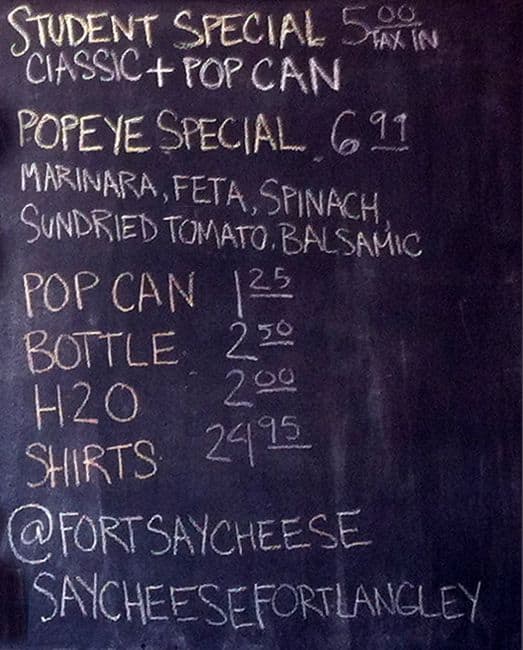 STUDENT SPECIAL 5.00 TAX IN
CLASSIC + POP CAN
POPEYE SPECIAL 6.99
MARINARA, FETA, SPINACH,
SUNDRIED TOMATO, BALSAMIC
POP CAN 1.25
BOTTLE 2.50
H2O 2.00
SHIRTS 24.95
@FORTSAYCHEESE
SAYCHEESEFORTLANGLEY